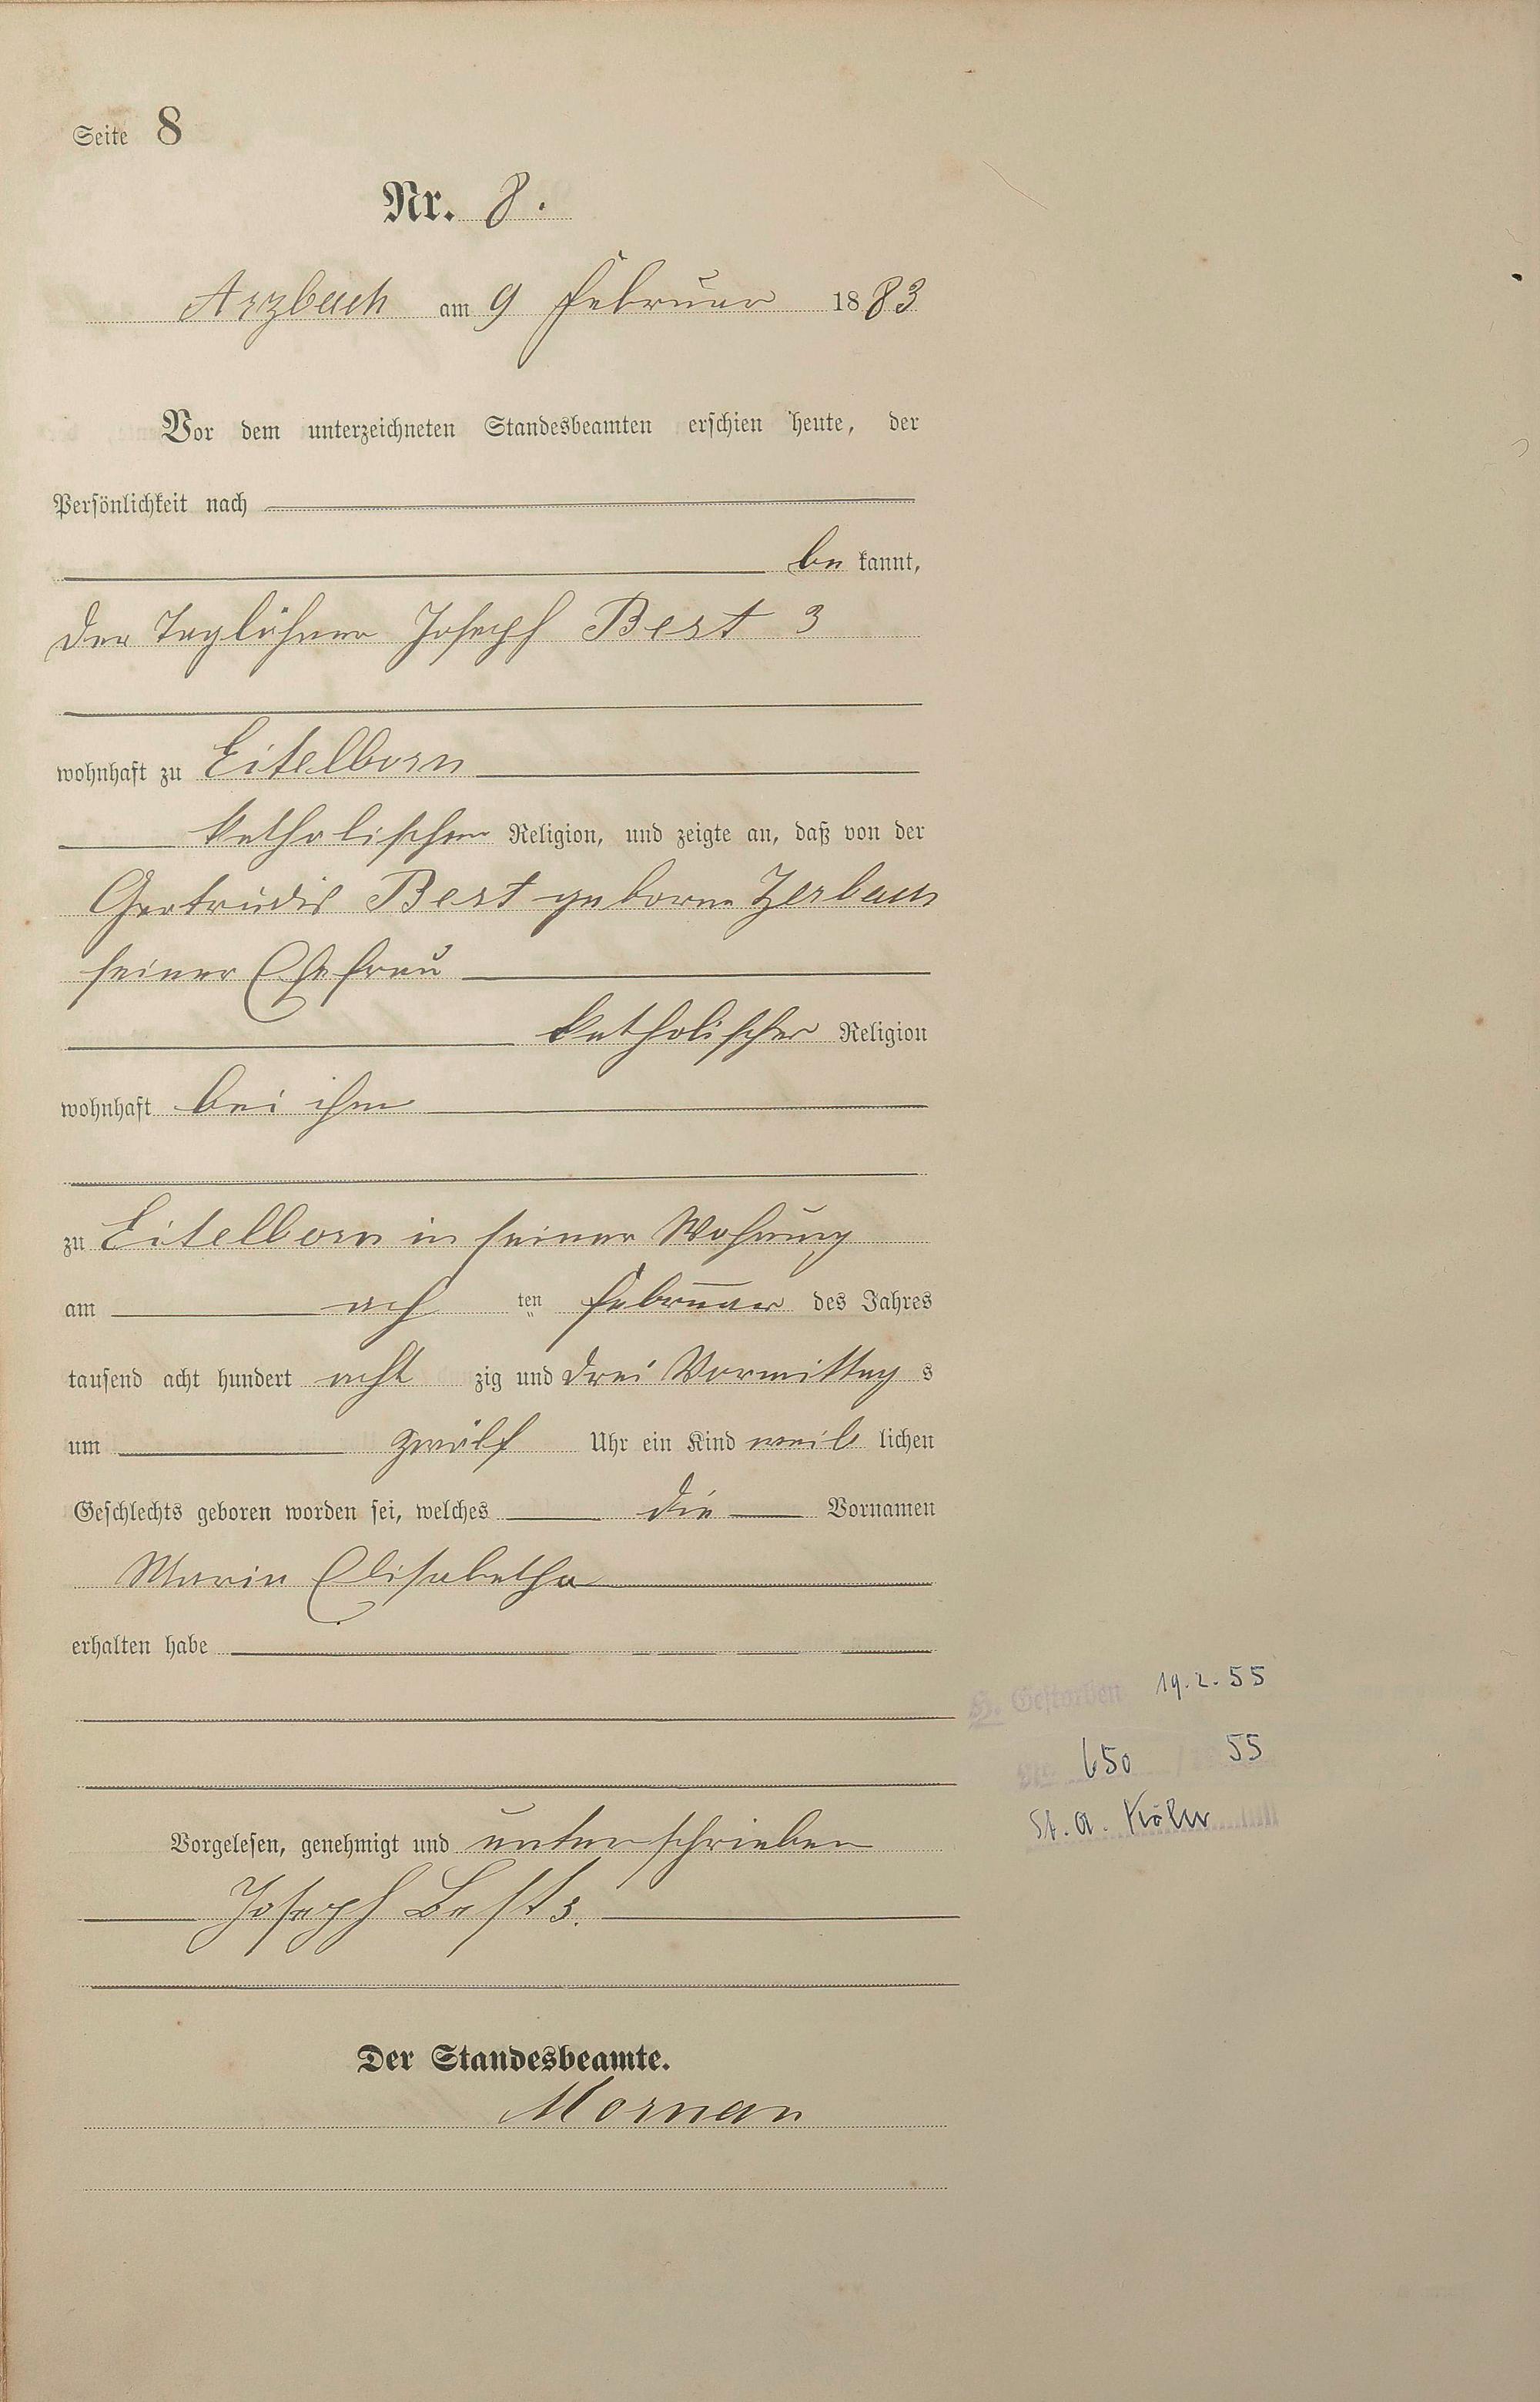 Seite 8
Nr. 8.
Arzbach am 9 Februar 1883
Vor dem unterzeichneten Standesbeamten erschien heute, der
Persönlichkeit nach
be kannt,
der Taglöhner Joseph Best 3
wohnhaft zu Eitelborn
katholischer Religion, und zeigte an, daß von der
Gertrudis Best geborne Zerbach
seiner Ehefrau
katholischer Religion
wohnhaft bei ihm
zu Eitelborn in seiner Wohnung
am ach ten Februar des Jahres
tausend acht hundert acht zig und drei Vormittag s
um zwölf Uhr ein Kind weib lichen
Geschlechts geboren worden sei, welches die Vornamen
Maria Elisabetha
erhalten habe
H. Gestorben 19.2.55
Nr. 650 / 55
St. A. Köln
Vorgelesen, genehmigt und unterschrieben
Joseph Best 3.
Der Standesbeamte.